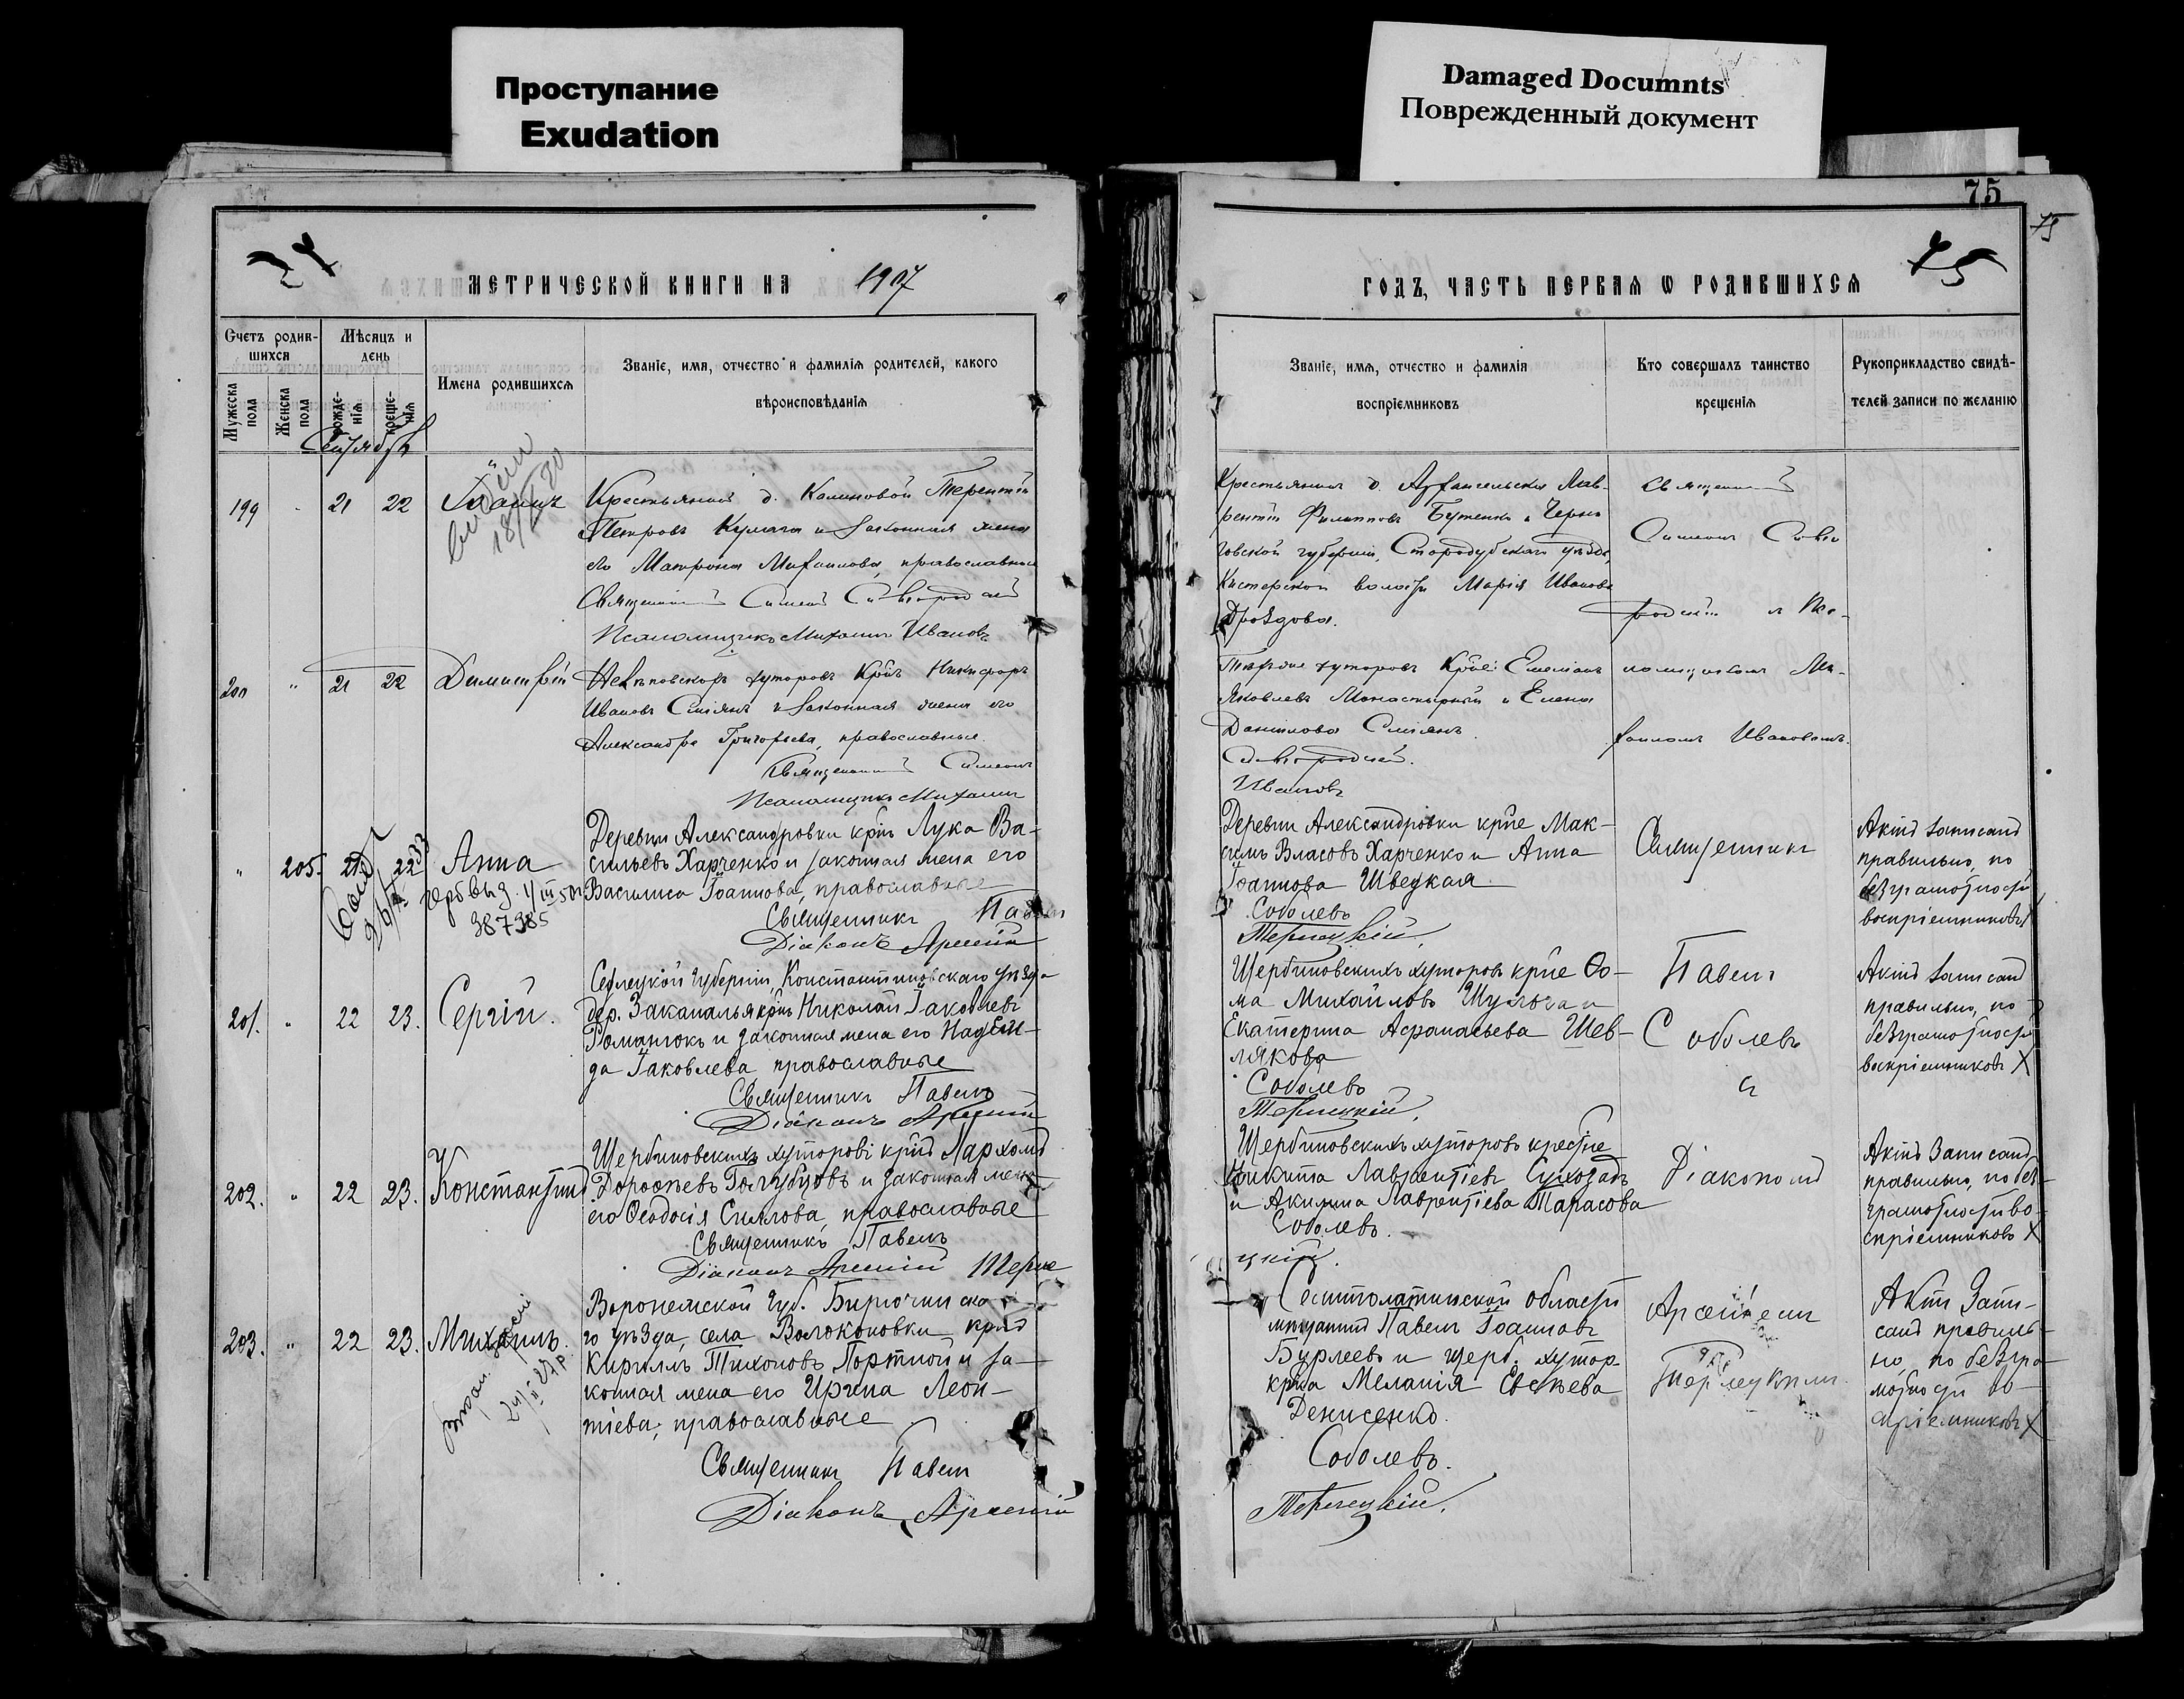 Проступание
Exudation
Damaged Documnts
Поврежденный документ
75
75
МЕТРИЧЕСКОЙ КНИГИ НА 1907
Счетъ родив-
шихся
Мѣсяцъ и
день
Мужеска
пола
Женска
пола
рожде-
нія
креще-
нія
Имена родившихся
Званіе, имя, отчество и фамилія родителей, какого
вѣроисповѣданія
Сентябрь
199 21 22 Іоаннъ
Крестьянинъ д. Калиновой Терентій
Петровъ Кулага и законная жена
его Матрона Михаилова, православные
Священникъ Симеонъ
Псаломщикъ Михаилъ Ивановъ
200 " 21 22 Димитрій
хуторовъ Кр-нъ Никифоръ
Ивановъ Сміянъ и законная жена его
Александра Григорьева, православные.
Священникъ Симеонъ
Псаломщикъ Михаилъ
" 205. 21 22 Анна
387385
Деревни Александровки кр-нъ Лука Ва-
сильевъ Харченко и законная жена его
Василиса Іоаннова, православные
Священникъ Павелъ
Діаконъ Арсеній
201. " 22 23. Сергій.
Седлецкой губерніи, Константиновскаго уѣзда
дер. Заканалья кр-нъ Николай Іаковлевъ
Романюкъ и законная жена его Надеж-
да Іаковлева православные
Священникъ Павелъ
Діаконъ Арсеній
202. " 22 23. Константинъ
Щербиновскихъ хуторовъ
Дороѳеевъ Голубцовъ и законная жена
его Ѳеодосія православные
Священникъ Павелъ
Діаконъ Арсеній Терле
203. " 22 23. Михаилъ.
Воронежской губ. Бирючинска-
го уѣзда, села Волоконовки кр-нъ
Кириллъ Тихоновъ Портной и за-
конная жена его Ирина Леон-
тіева, православные
Священникъ Павелъ
Діаконъ Арсеній
75
ГОДЪ, ЧАСТЬ ПЕРВАЯ Ѡ РОДИВШИХСЯ
Званіе, имя, отчество и фамилія
воспріемниковъ
Кто совершалъ таинство
крещенія
Рукоприкладство свидѣ-
телей записи по желанію
Крестьянинъ д. Архангельской Лав-
рентій Филипповъ Бутенко и Черни
говской губерніи, Стародубскаго уѣзда,
волости Марія Иванова
Дроздова.
Священникъ
Симеонъ
и Пса-
хуторовъ Кр-не: Емеліанъ
Яковлевъ Монастырный и Елена
Данилова Сміянъ.
Ивановъ
ломщикомъ Ми-
хаиломъ Ивановымъ.
Деревни Александровки кр-не Мак-
симъ Власовъ Харченко и Анна
Іоаннова Швецкая
Соболевъ
Терлецкій.
Священникъ
Актъ записанъ
правильно, по
безграмотности
воспріемниковъ X
Щербиновскихъ хуторовъ кр-не Ѳо-
ма Михайловъ Шульга и
Екатерина Аѳанасьева Шев-
лякова
Соболевъ
Терлецкій.
Павелъ
Соболевъ
съ
Актъ записанъ
правильно, по
безграмотности
воспріемниковъ X
Щербиновскихъ хуторовъ крест-не
Никита Лаврентіевъ
и Акилина Лаврентіева Тарасова
Соболевъ.
цкій.
Діакономъ
Актъ Записанъ
правильно, по без-
грамотности во-
спріемниковъ X
Семипалатинской области
мѣщанинъ Павелъ Іоанновъ
Бурлеевъ и щерб. хутор.
кр-ка Меланія Евсѣева
Денисенко.
Соболевъ.
Терлецкій.
Арсеніемъ
Терлецкимъ
Актъ Запи-
санъ правиль-
но, по безгра-
мотности во-
спріемниковъ X